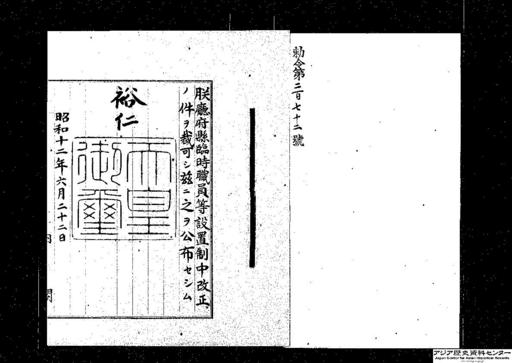 勅令第二百七十二號
朕廳府縣臨時職員等設置制中改正
ノ件ヲ裁可シ茲ニ之ヲ公布セシム
裕仁
天皇御璽
昭和十二年六月二十二日
アジア歴史資料センター
Japan Center for Asian Historical Records